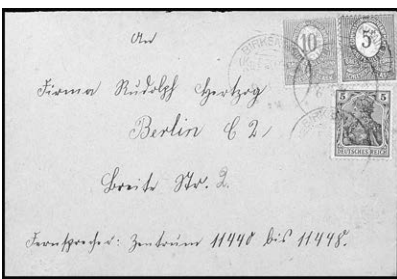 An
Firma Rudolph Hertzog
Berlin C 2
Breite Str. 2.
Fernsprecher: Zentrum 11440 bis 11448.
10
5
BIRKEN
5 5
DEUTSCHES REICH